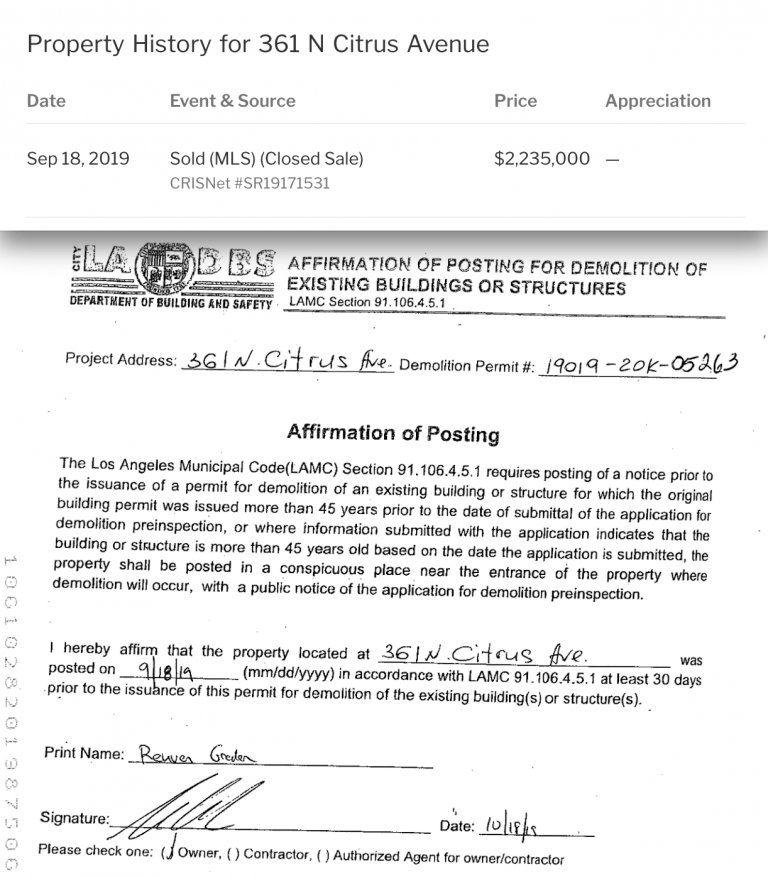 Property History for 361 N Citrus Avenue
Date Event & Source Price Appreciation
Sep 18, 2019 Sold (MLS) (Closed Sale) $2,235,000 —
CRISNet #SR19171531
CITY LA DBS
DEPARTMENT OF BUILDING AND SAFETY
AFFIRMATION OF POSTING FOR DEMOLITION OF
EXISTING BUILDINGS OR STRUCTURES
LAMC Section 91.106.4.5.1
Project Address: 361 N. Citrus Ave. Demolition Permit #: 19019-20K-05263
Affirmation of Posting
The Los Angeles Municipal Code(LAMC) Section 91.106.4.5.1 requires posting of a notice prior to
the issuance of a permit for demolition of an existing building or structure for which the original
building permit was issued more than 45 years prior to the date of submittal of the application for
demolition preinspection, or where information submitted with the application indicates that the
building or structure is more than 45 years old based on the date the application is submitted, the
property shall be posted in a conspicuous place near the entrance of the property where
demolition will occur, with a public notice of the application for demolition preinspection.
I hereby affirm that the property located at 361 N. Citrus Ave. was
posted on 9/18/19 (mm/dd/yyyy) in accordance with LAMC 91.106.4.5.1 at least 30 days
prior to the issuance of this permit for demolition of the existing building(s) or structure(s).
Print Name: Reuven
Signature: Date: 10/18/19
Please check one: (✓) Owner, ( ) Contractor, ( ) Authorized Agent for owner/contractor